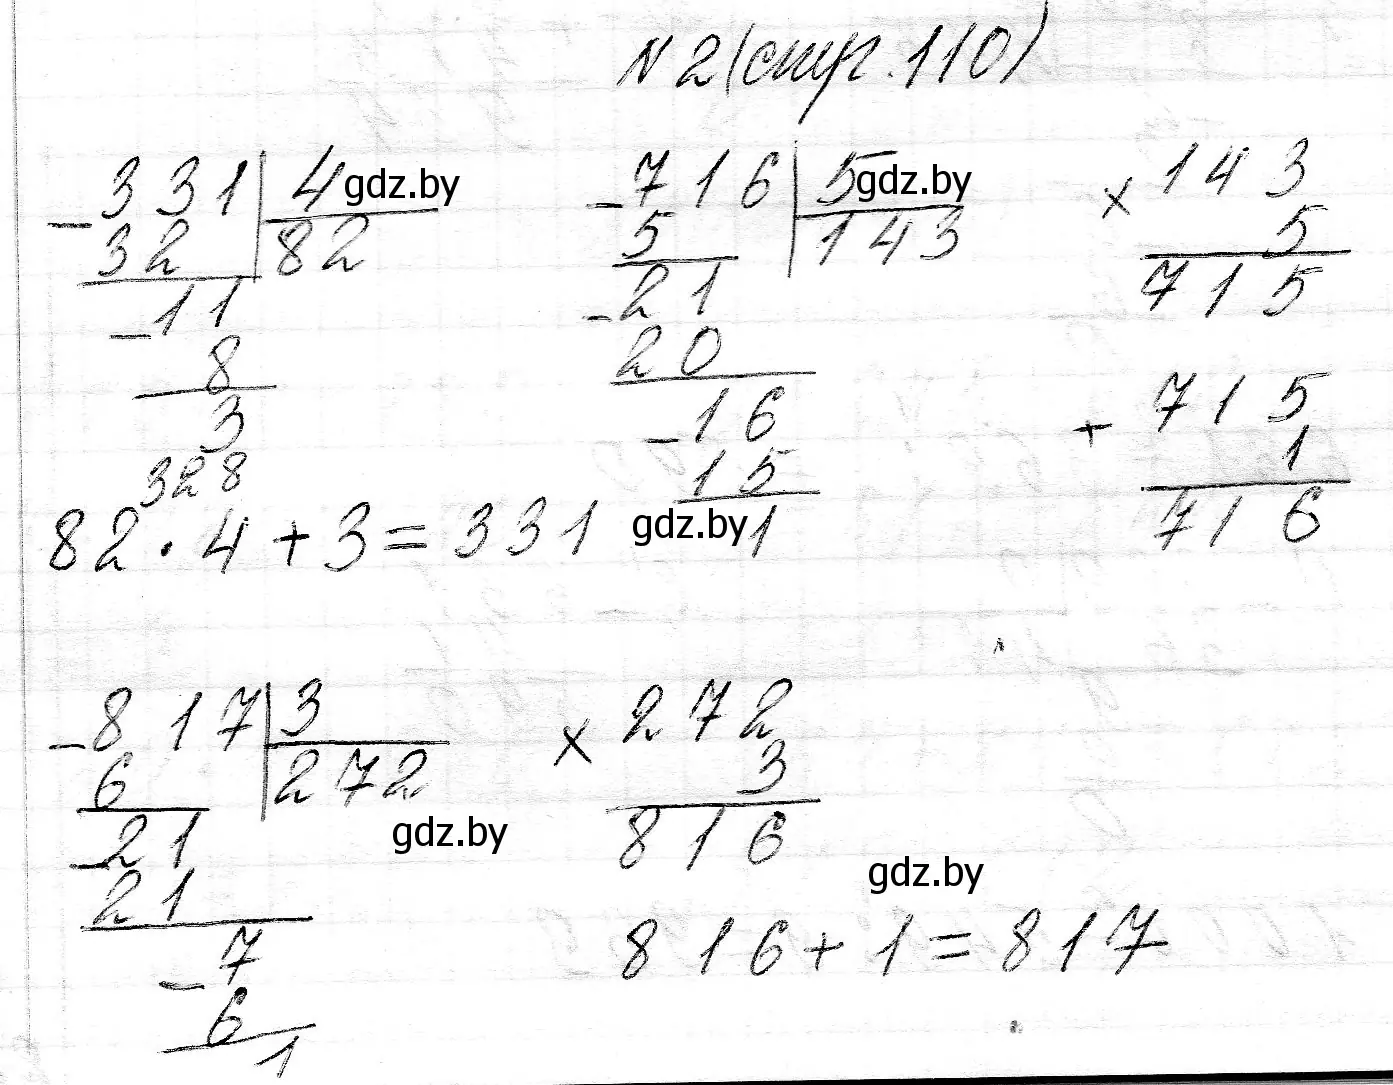 N 2 (стр. 110)
331 4
32 82
11
8
3
328
82 · 4 + 3 = 331
716 5
5 143
21
20
16
15
1
× 143
5
715
+ 715
1
716
817 3
6 272
21
21
7
6
1
× 272
3
816
816 + 1 = 817
gdz.by
gdz.by
gdz.by
gdz.by
gdz.by